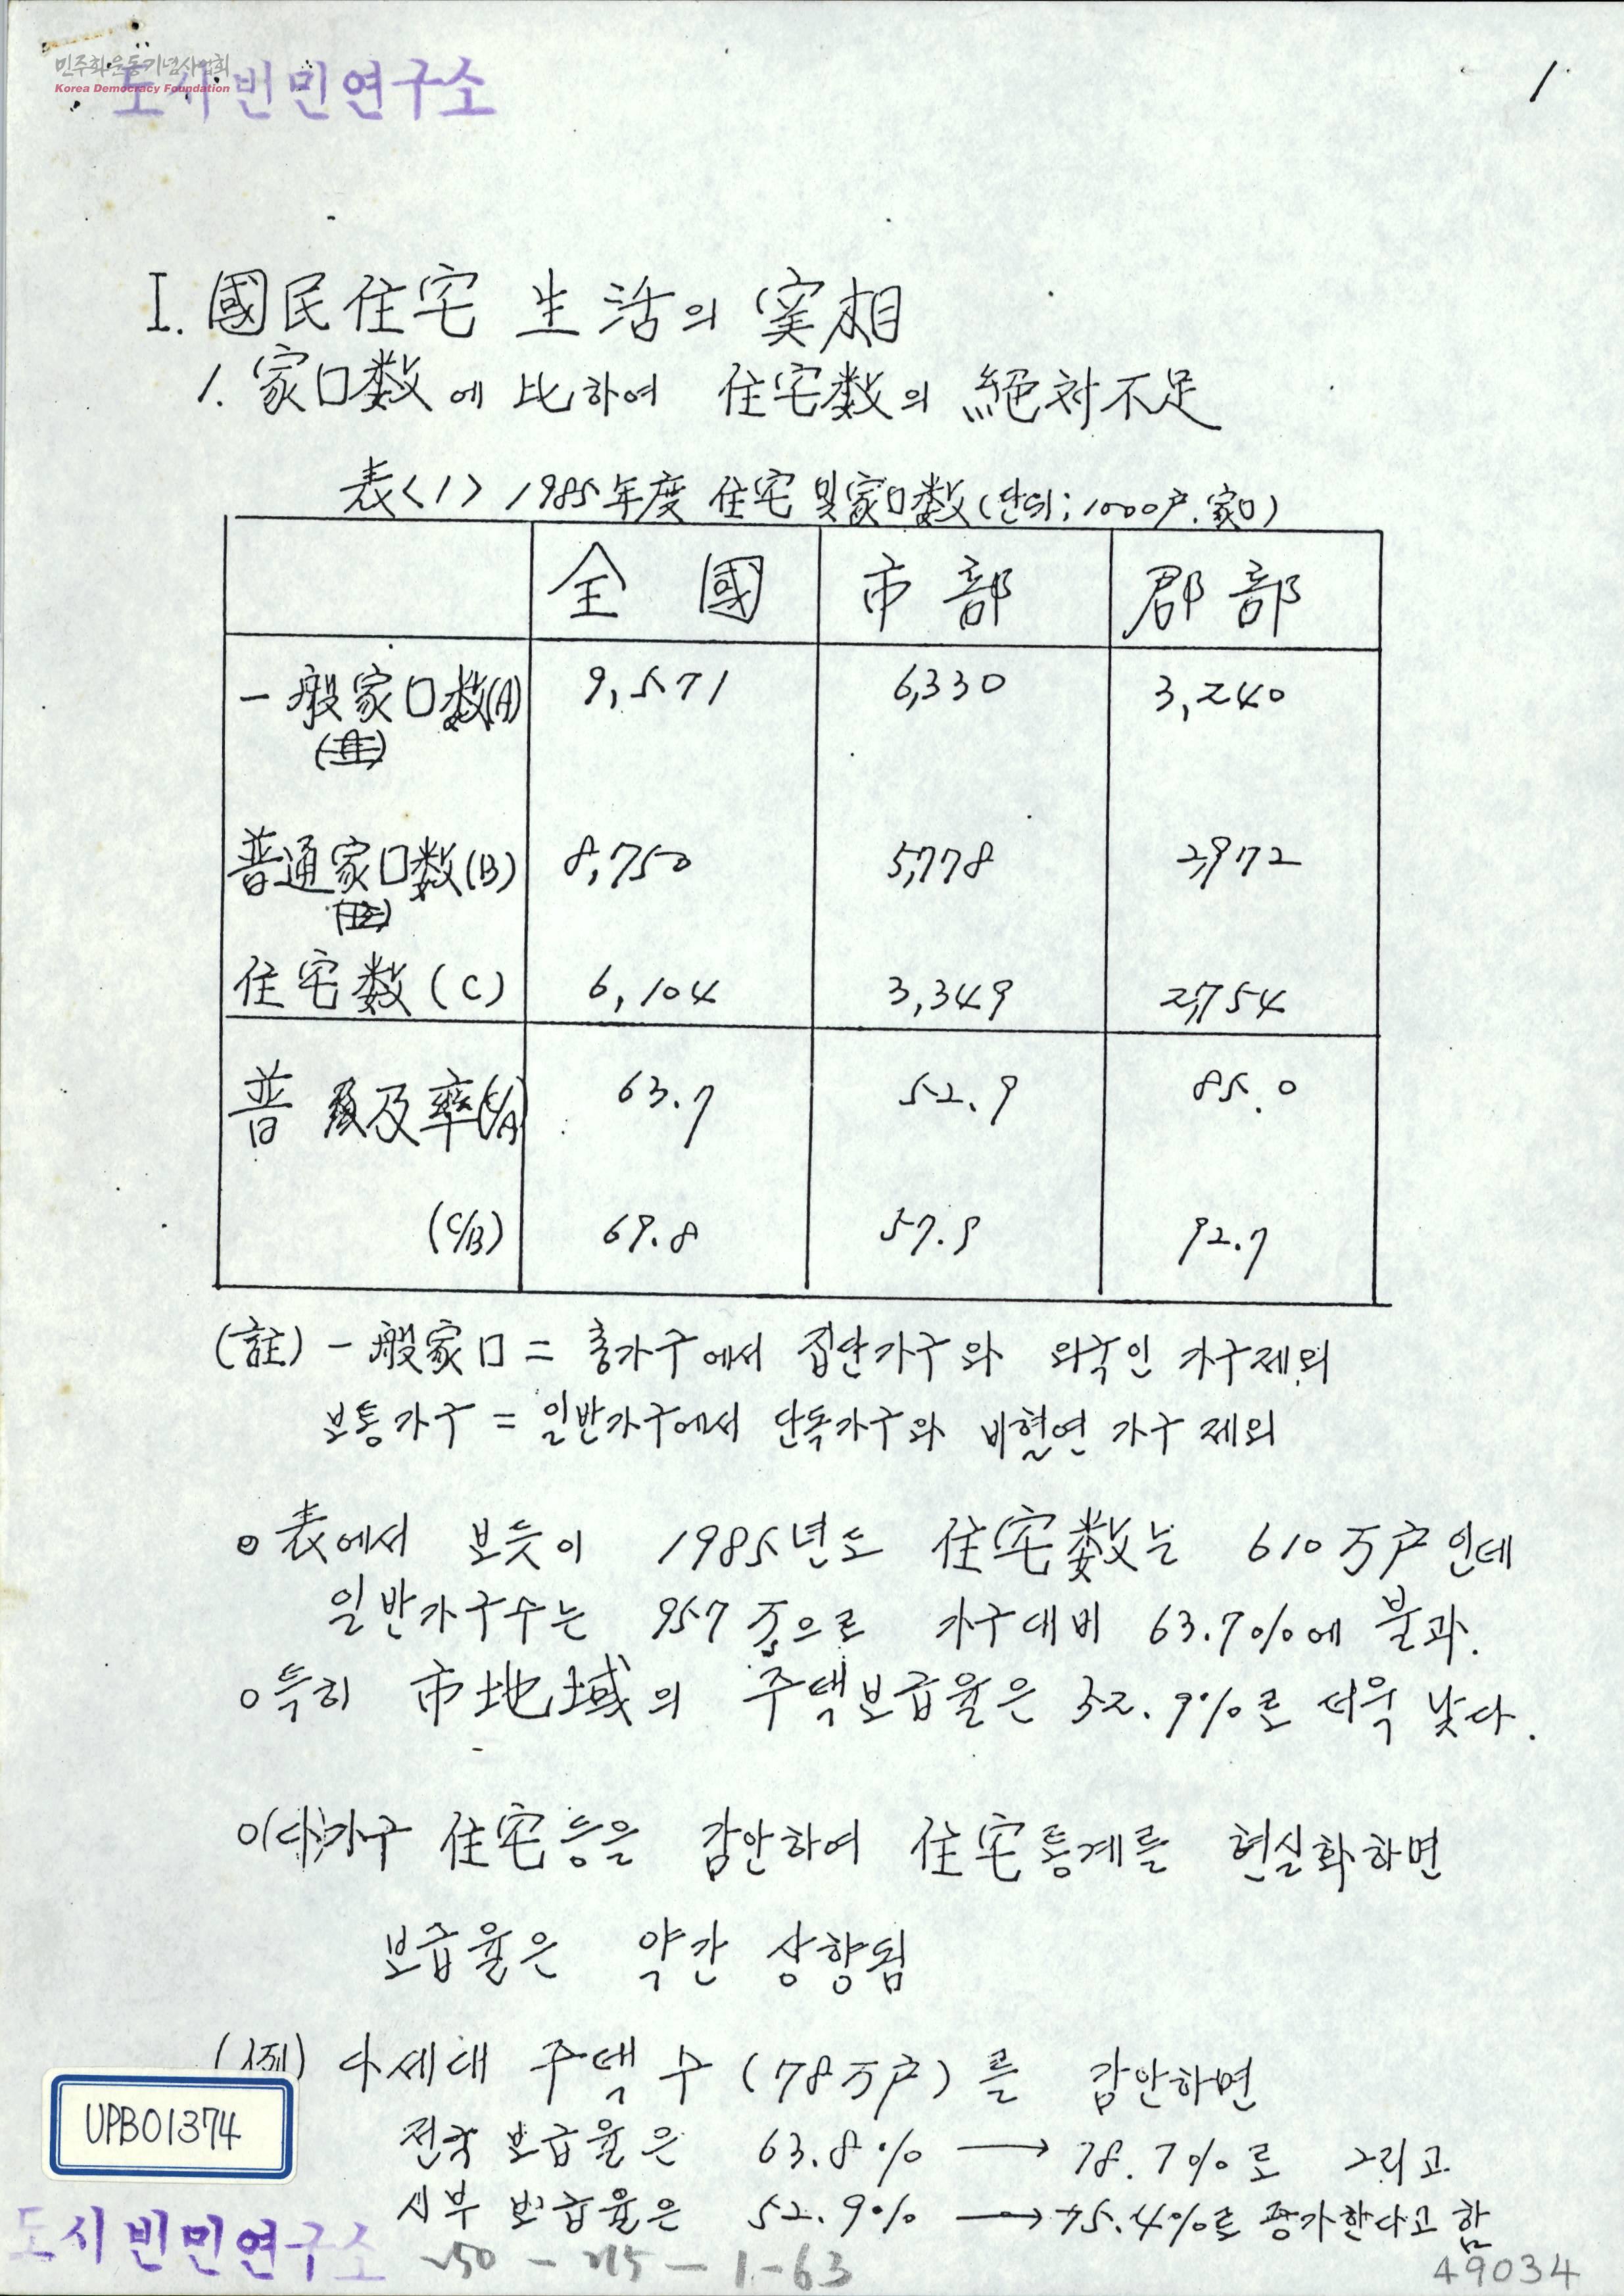 민주화운동기념사업회
Korea Democracy Foundation
도시빈민연구소
1
I. 國民住宅 生活의 実相
1. 家口数에 比하여 住宅数의 絕対不足
表<1> 1985年度 住宅 및 家口数 (단위; 1000戶. 家口)
全國 市部 郡部
一般家口数(A) 9,571 6,330 3,240
普通家口数(B) 8,750 5,778 2,972
住宅数(C) 6,104 3,349 2,754
普及率(C/A) 63.7 52.9 85.0
(C/B) 69.8 57.9 92.7
(註) 一般家口 = 총가구에서 집단가구와 외국인 가구제외
보통가구 = 일반가구에서 단독가구와 비혈연 가구 제외
o 表에서 보듯이 1985년도 住宅数는 610万戶인데
일반가구수는 957万으로 가구대비 63.7%에 불과.
o 특히 市地域의 주택보급율은 52.9%로 더욱 낮다.
o (다)가구 住宅등을 감안하여 住宅통계를 현실화하면
보급율은 약간 상향됨
(例) 다세대 주택수 (78万戶)를 감안하면
전국 보급율은 63.8% → 78.7%로 그리고
시부 보급율은 52.9% → 75.4%로 증가한다고 함
UPB01374
도시빈민연구소
49034